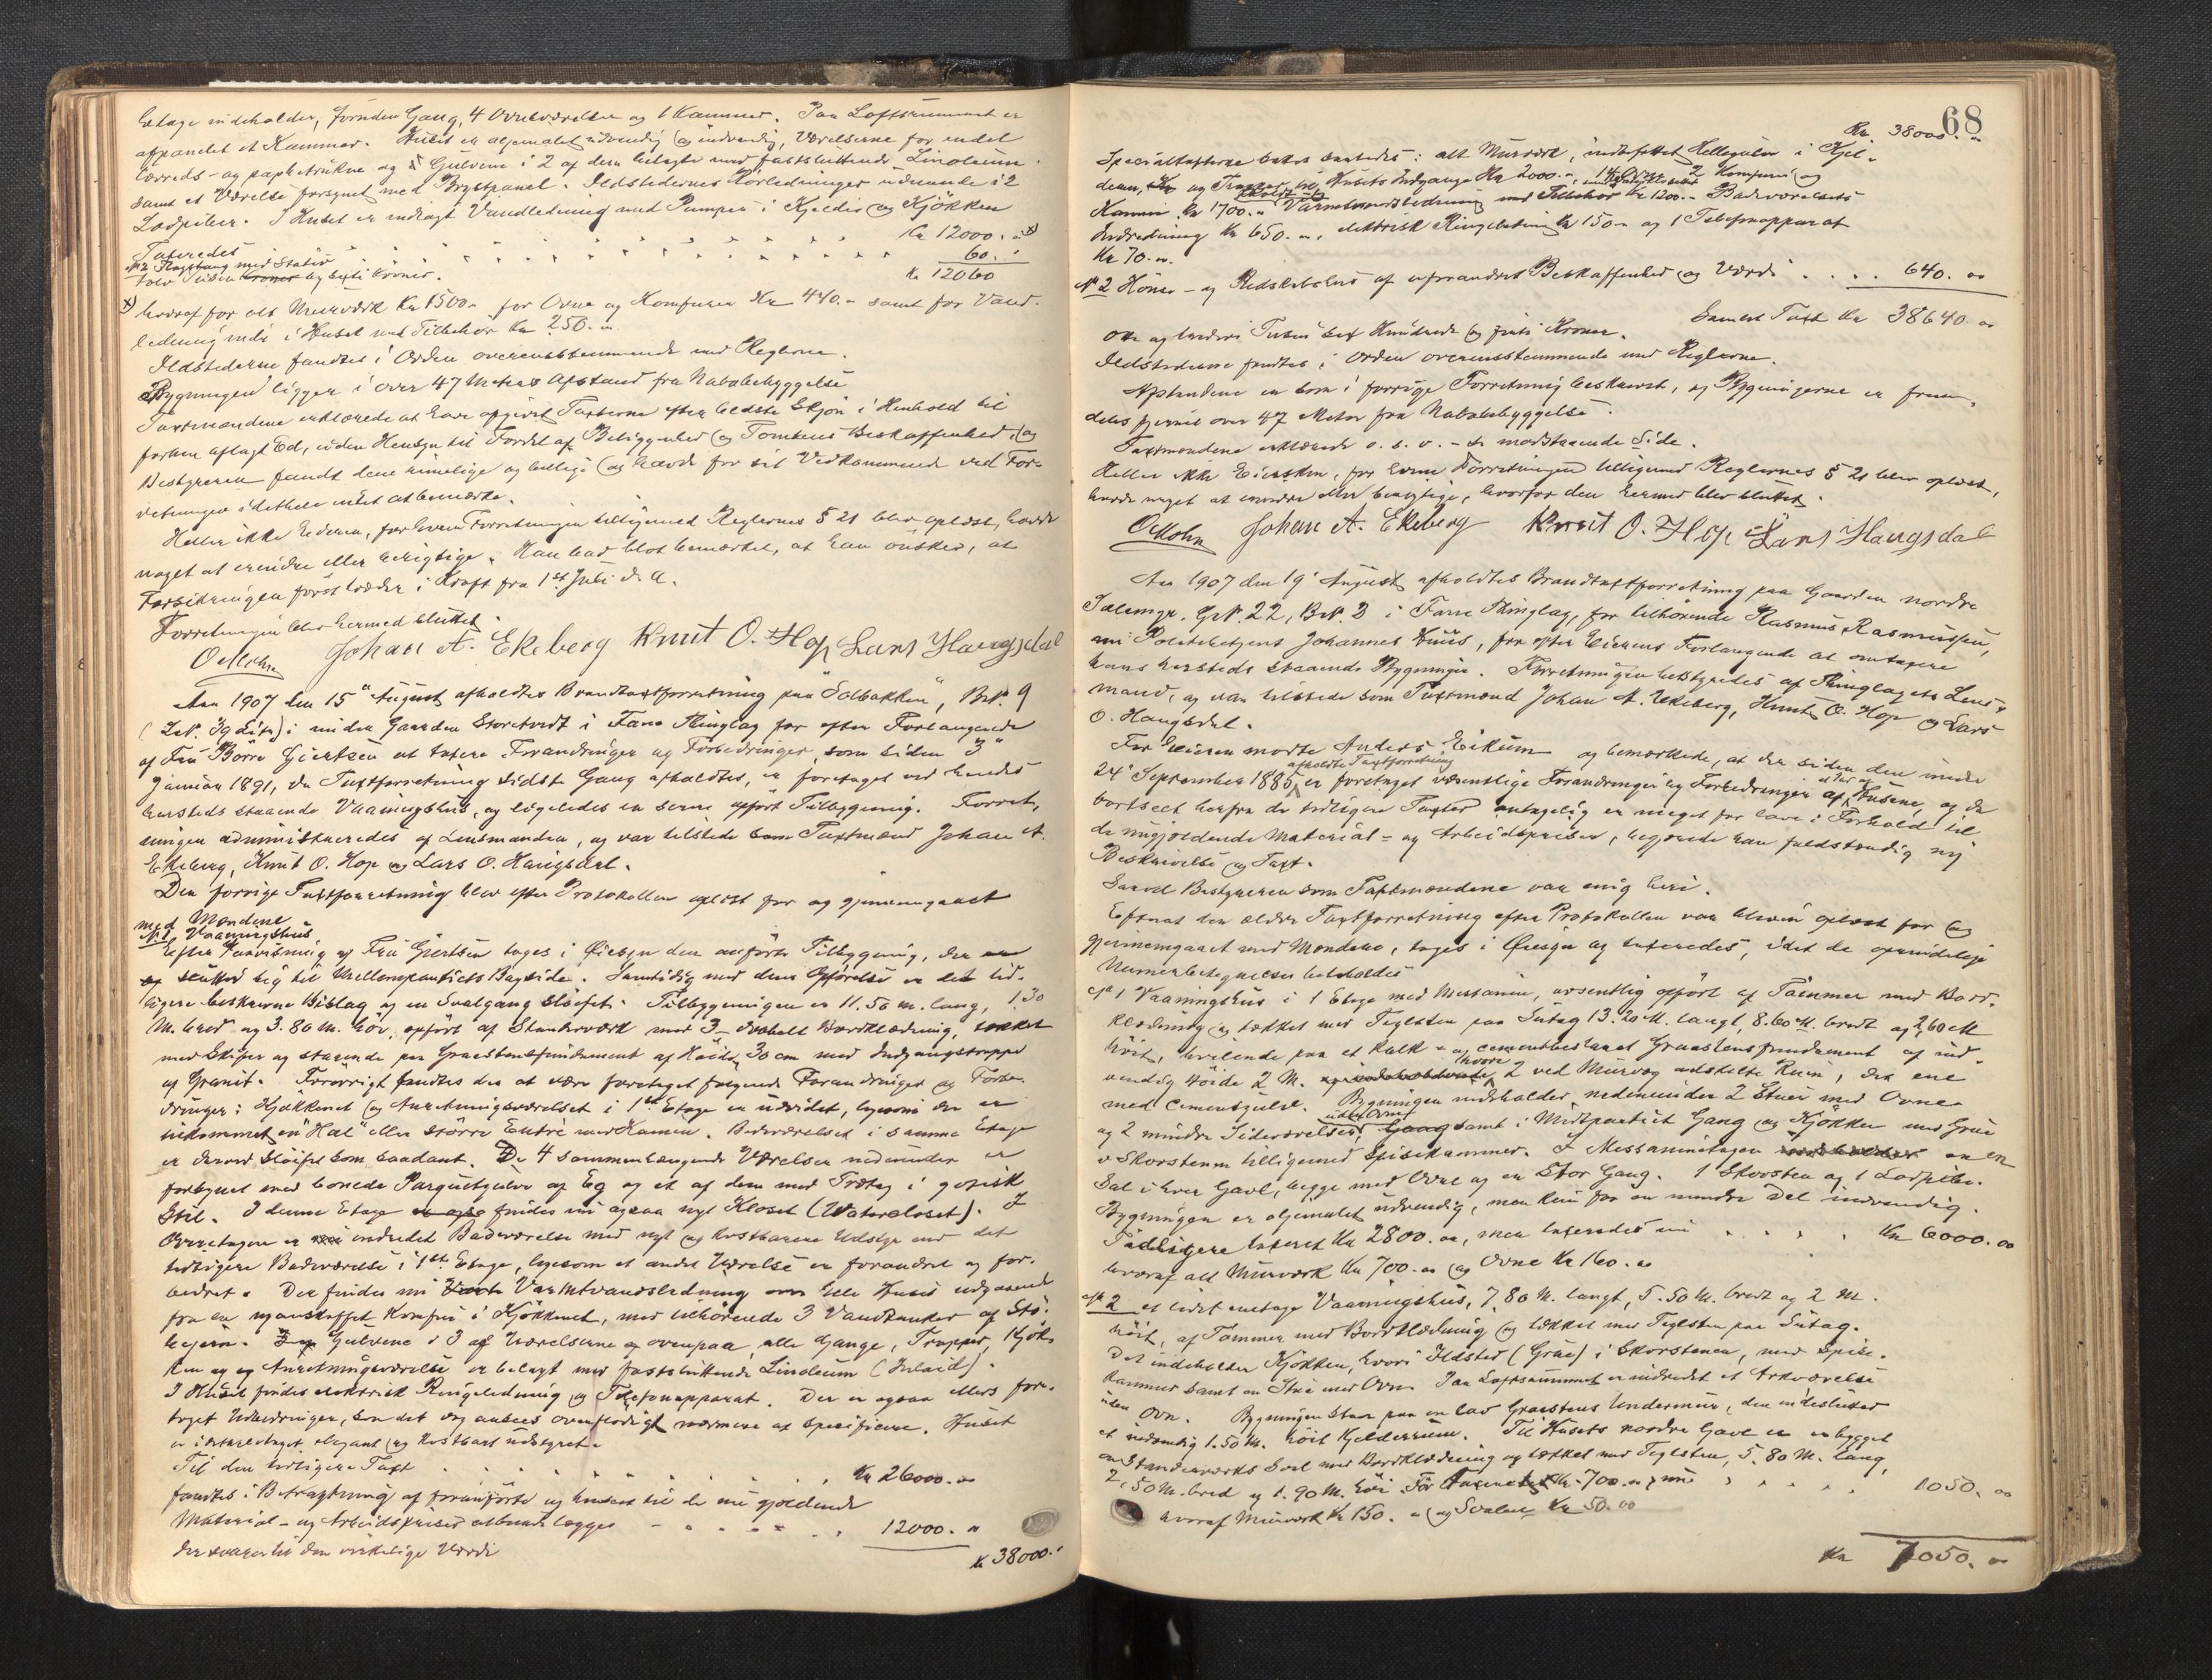 Etage indeholder, foruden Gang, 4 Værelser og 1 Kammer. Paa Loftsrummet er
afpanelet et Kammer. Huset er oljemalet udvendig og indvendig, Værelserne for endel
lærreds- og papbetrukne og Gulvene i 2 af dem belagte med fastsluttende Linoleum
samt et Værelse forsynet med Brystpanel. Ildstedernes Rørledninger udmunde i 2
Lodpiber. I Huset er indlagt Vandledning med Pumper i Kjelder og Kjøkken
Taxeredes Kr 12000. x)
No 2 Flagstang med Stativ 60.
tolv Tusen Kroner og sexti Kroner. Kr 12060
x) hvoraf for alt Murværk Kr 1500.- for Ovne og Komfurer Kr 440.- samt for Vand-
ledning inde i Huset med Tilbehør Kr 250.
Ildstederne fandtes i Orden overensstemmende med Reglerne.
Bygningen ligger i over 47 Meters Afstand fra Nabobebyggelse
Taxtmændene erklærede at have afgivet Taxterne efter bedste Skjøn i Henhold til
forhen aflagt Ed, uden Hensyn til Fordel af Beliggenhed og Tomtens Beskaffenhed, og
Bestyreren fandt dem rimelige og billige og havde for sit Vedkommende ved For-
retningen i dethele intet at bemærke.
Heller ikke Eieren, for hvem Forretningen tilligemed Reglernes § 21 blev oplæst, havde
noget at erindre eller berigtige. Han bad blot bemærket, at han ønsker, at
Forsikringen først træder i Kraft fra 1st Juli d. A.
Forretningen blev hermed sluttet.
OMohn Johan A. Ekeberg Knut O. Hop Lars Haugsdal
Aar 1907 den 15 August afholdtes Brandtaxtforretning paa "Solbakken", Brt. 9
i indre Gaarden Storetvedt i Fane Thinglag for efter Forlangende
af Fru Børre Giertsen at taxere Forandringer og Forbedringer, som siden 3
Januar 1891, da Taxtforretning sidste Gang afholdtes, er foretaget ved hendes
hersteds staaende Vaaningshus, og ligeledes en senere opført Tilbygning. Forret-
ningen administreredes af Lensmanden, og var tilstede som Taxtmænd Johan A.
Ekeberg, Knut O. Hop og Lars O. Haugsdal.
Den forrige Taxtforretning blev efter Protokollen oplæst for og gjennemgaaet
med Mændene
No 1 Vaaningshus
Efter Paavisning af Fru Giertsen toges i Øiesyn den anførte Tilbygning, der
slutter sig til Mellempartiets Bagside. Samtidig med dens Opførelse er det tid-
ligere beskrevne Bislag og en Svalgang sløifet. Tilbygningen er 11.50 m. lang, 1.30
M. bred og 3.80 M. høi, opført af Stenderværk med 3-dobbelt Bordklædning, tækket
med Skifer og staaende paa Graastensfundament af Høide 30 cm med Indgangstrappe
af Granit. Forøvrigt fandtes der at være foretaget følgende Forandringer og Forbe-
dringer: Kjøkkenet og Anretningsværelset i 1st Etage er udvidet, ligesom der er
indkommet en "Hal" eller større Entré med Kamin. Badeværelset i samme Etage
er derved sløifet som saadant. De 4 sammenhængende Værelser nedenunder er
forsynet med bonede Parquetgulve af Eg og et af dem med Trætag i gotisk
Stil. I denne Etage findes nu ogsaa nyt Kloset (Watercloset). I
Øvreetagen er indredet Badeværelse med nyt og kostbarere Udstyr end det
tidligere Badeværelse i 1st Etage, ligesom et andet Værelse er forandret og for-
bedret. Der findes nu Varmtvandsledning over hele Huset udgaaende
fra en nyanskaffet Komfur i Kjøkkenet, med tilhørende 3 Vandtanker af Stø-
bejern. Gulvene i 3 af Værelserne ovenpaa, alle Gange, Trapper, Kjøk-
ken og Anretningsværelse er belagt med fastsluttende Linoleum (Inlaid).
I Huset findes elektrisk Ringeledning og Telefonapparat. Der er ogsaa ellers fore-
taget Udbedringer, som det dog ansees overflødigt nærmere at specificere. Huset
er i det hele taget elegant og kostbart udstyret.
Til den tidligere Taxt Kr 26000.
fandtes i Betragtning af foranførte og hensees til de nu gjældende
Material- og Arbeidspriser at burde lægges 12000.
der svarer til den virkelige Værdi Kr 38000.
68
Kr. 38000.
Specialtaxterne saaledes: alt Murværk, indbefattet Hellegulv i Kjel-
deren, og Trapper ved Husets Indgange Kr 2000.-, 14 Ovne 2 Komfurer og
Kamin Kr 1700.- Varmtvandsledning med Tilbehør Kr 1200.- Badeværelsets
Indredning Kr 650.-, elektrisk Ringeledning Kr 150.- og 1 Telefonapparat
Kr 70.-.
No 2 Hønse- og Redskabshus af uforandret Beskaffenhed og Værdi 640.
Samlet Taxt Kr 38640.
otte og tredive Tusen sex Hundrede og firti Kroner.
Ildstederne fandtes i Orden overensstemmende med Reglerne.
Afstandene er som i forrige Forretning beskrevet, og Bygningerne er frem-
deles fjernet over 47 Meter fra Nabobebyggelse.
Taxtmændene erklærede o. s. v. - se modstaaende Side.
Heller ikke Eiersken, for hvem Forretningen tilligemed Reglernes § 21 blev oplæst,
havde noget at erindre eller berigtige, hvorfor den hermed blev sluttet.
OMohn Johan A. Ekeberg Knut O. Hop Lars Haugsdal
Aar 1907 den 19 August afholdtes Brandtaxtforretning paa Gaarden nordre
Grt. 22, Brt. 3 i Fane Thinglag, for tilhørende Rasmus Rasmussen,
nu Politibetjent Johannes Huus, for efter Eierens Forlangende at omtaxere
hans hersteds staaende Bygninger. Forretningen bestyredes af Thinglagets Lens-
mand, og var tilstede som Taxtmænd Johan A. Ekeberg, Knut O. Hop og Lars
O. Haugsdal.
For Eieren mødte Anders Eikum og bemærkede, at der siden den under
24 September 1885 afholdte Taxtforretning er foretaget væsentlige Forandringer og Forbedringer af Husene, og da
bortseet herfra de tidligere Taxter antagelig er meget for lave i Forhold til
de nugjældende Material- og Arbeidspriser, begjærede han fuldstændig ny
Beskrivelse og Taxt.
Saavel Bestyreren som Taxtmændene var enig heri.
Efterat den ældre Taxtforretning efter Protokollen var bleven oplæst for og
gjennemgaaet med Mændene, toges i Øiesyn og taxeredes, idet de oprindelige
Numerbetegnelser beholdes
No 1 Vaaningshus i 1 Etage med Messanin, væsentlig opført af Tømmer med Bord-
klædning og tækket med Teglsten paa Sutag 13.20 M. langt, 8.60 M. bredt og 2,60 M
høit, hvilende paa et kalk- og cementbestrøget Graastensfundament af ind-
vendig Høide 2 M. hvori 2 ved Murvæg adskilte Rum, det ene
med Cementgulv. Bygningen indeholder nedenunder 2 Stuer med Ovne
og 2 mindre Sideværelser uden Ovne, samt i Midtpartiet Gang og Kjøkken med Grue
v Skorstenen tilligemed Spisekammer. I Messaninetagen en
Sal i hver Gavl, begge med Ovne og en stor Gang. 1 Skorsten og 1 Lodpibe.
Bygningen er oljemalet udvendig, men kun for en mindre Del indvendig.
Tidligere taxeret Kr 2800.-, men taxeredes nu Kr 6000.
hvoraf alt Murværk Kr 700.- og Ovne Kr 160.-
No 2 et lidet enetages Vaaningshus, 7.80 M. langt, 5.50 M. bredt og 2 M.
høit, af Tømmer med Bordklædning og tækket med Teglsten paa Sutag.
Det indeholder Kjøkken, hvori Ildsted (Grue) i Skorstenen, med Spise-
kammer samt en Stue med Ovn. Paa Loftsrummet er indredet et Arkværelse
uden Ovn. Bygningen staar paa en lav Graastens Undermur, der indeslutter
et 1.50 M. høit Kjelderrum. Til Husets nordre Gavl er bygget
en Stenderværks Sval med Bordklædning og tækket med Teglsten, 5.80 M. lang,
2,50 M. bred og 1.90 M. høi. Før taxeret Kr 700.-, nu 1050.
hvoraf Murværk Kr 150.- og Svalen Kr 50.00
Kr 7050.